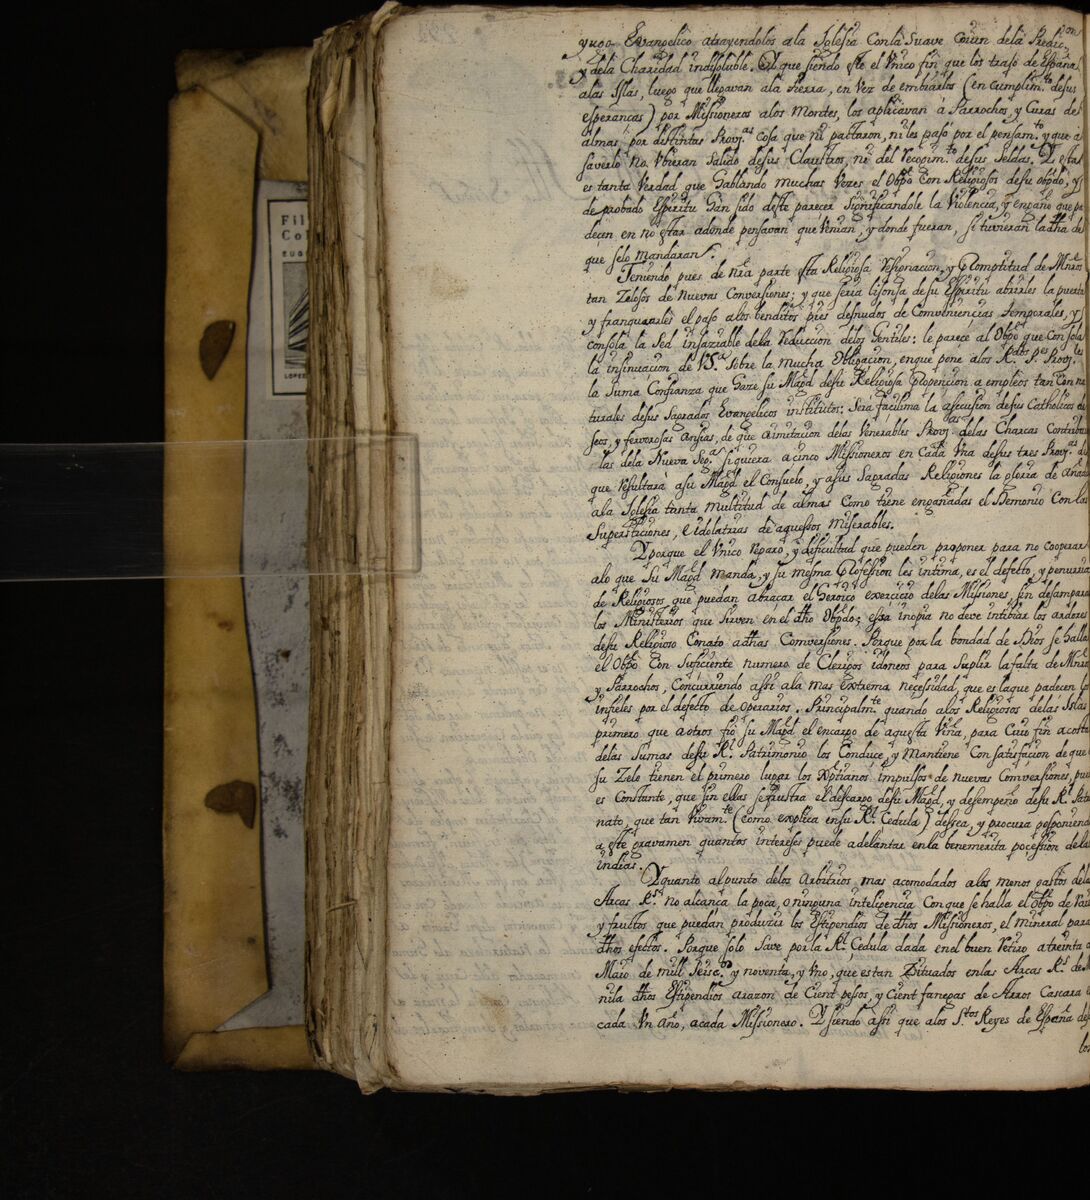 yugo Evangelico atrayendolos ala Iglesia Conla Suave dela Predic.on
y dela Charidad indisoluble. El que siendo este el Vnico fin que los trajo de España
alas Islas, luego que llegavan ala tierra, en Vez de embiarlos (en cumplim.to desus
esperancas) por Missioneros alos Montes, los aplicavan à Parrochos, y Curas de
almas por distintas Prov.as cosa que ni pactaron, niles pasó por el pensam.to y que a
saverlo no Vbieran Salido desus Claustros, ni del recogim.to desus Seldas. Y esta
es tanta Verdad que hablando muchas Vezes el Obpo Con Religiosos desu obpdo, y
de probado Espiritu han sido deste parecer Significandole la Violencia, y engaño que pa
decen en no estar adonde pensavan que Venian, y donde fueran, si tuvieran la dha de
que selo mandaran.
Teniendo pues de nra parte esta Religiosa resignacion, y Promptitud de Mnros
tan Zelosos de Nuevas Conversiones; y que seria lisonja desu Espiritu abrirles la puerta
y franquearles el paso alos benditos pies desnudos de Conveniencias temporales, y
consola la Sed insaziable dela reduccion delos Gentiles: le parece al Obpo que Con sola
la insinuacion de VS.a sobre la mucha Obligacion, enque pone alos R.dos P.es Prov.les
la suma Confianza que haze su Magd desu Religiosa Propencion a empleos tan Con na
turales desus Sagrados Evangelicos institutos: Sera facilima la asecusion desus Catholicos de
seos, y fervorosas ansias, de que aimitacion delas Venerables Prov.as delas Charcas Contribu
las dela Nueva Seg.a siquiera acinco Missioneros en Cada Vna desus tres Prov.as de
que resultara asu Magd el Consuelo, y asus Sagradas Religiones la gloria de Añad
ala Iglesia tanta multitud de almas Como tiene engañadas el Demonio Con las
Supersticiones, e idolatrias de aquessos miserables.
Y porque el Vnico reparo, y dificultad que pueden proponer para no cooperar
alo que Su Magd manda, y su mesma Profession les intima, es el defecto, y penuria
de Religiosos que puedan abraçar el heroico exercicio delas Missiones, sin desampara
los Ministerios que Sirven en el dho Obpdo; essa inopia no deve intibiar los ardores
desu Religioso Conato adhas Comversiones. Porque por la bondad de Dios se halla
el Obpo Con Suficiente numero de Clerigos idoneos para Suplir la falta de Mnros
y Parrochos, Concurriendo assi ala mas extrema necessidad, que es laque padecen lo
infieles por el defecto de operarios. Principalm.te quando alos Religiosos delas Islas
primero que aotros fió su Magd el encargo de aquesta Viña, para Cuio fin acosta
delas Sumas desu R.l Patrimonio los Conduce, y Mantiene Con satisfacion de que
su Zelo tienen el primero lugar los Xptianos impulsos de nuevas Comversiones, pue
es Constante, que sin ellas sefrustra el descargo desu Magd, y desempeño desu R.l Pat
nato, que tan Vivam.te (como explica ensu R.l Cedula) dessea, y procura posponiend
a este gravamen quantos intereses puede adelantar enla benemerita pocession delas
indias.
Y quanto alpunto delos Arbitrios mas acomodados alos menos gastos dela
Arcas R.s no alcança la poca, o ninguna inteligencia Con que se halla el Obpo de
y fructos que puedan produzir los Estipendios de dhos Missioneros, el mineral para
dhos efectos. Porque solo save por la R.l Cedula dada enel buen retiro atreinta d
Maio de mill seisc.os y noventa, y Vno, que estan Situados enlas Arcas R.s de
nila dhos Estipendios arazon de Cient pessos, y Cient fanegas de Arros Cascara
cada Vn año, acada Missionero. Y siendo assi que alos S.tos Reyes de España de
los
Fil
Col
EUG
LOPEZ